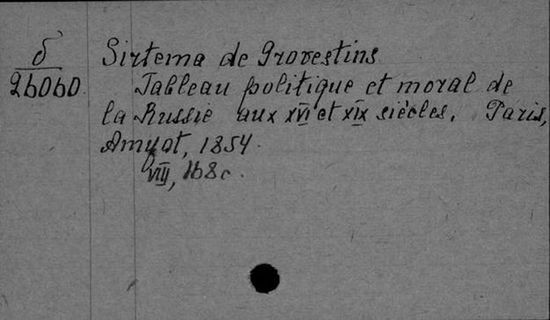 б
26060
Sirtema de Grovestins
Tableau politique et moral de
la Russie aux XVI et XIX siècles. Paris,
Amyot, 1854.
VIII, 168c.